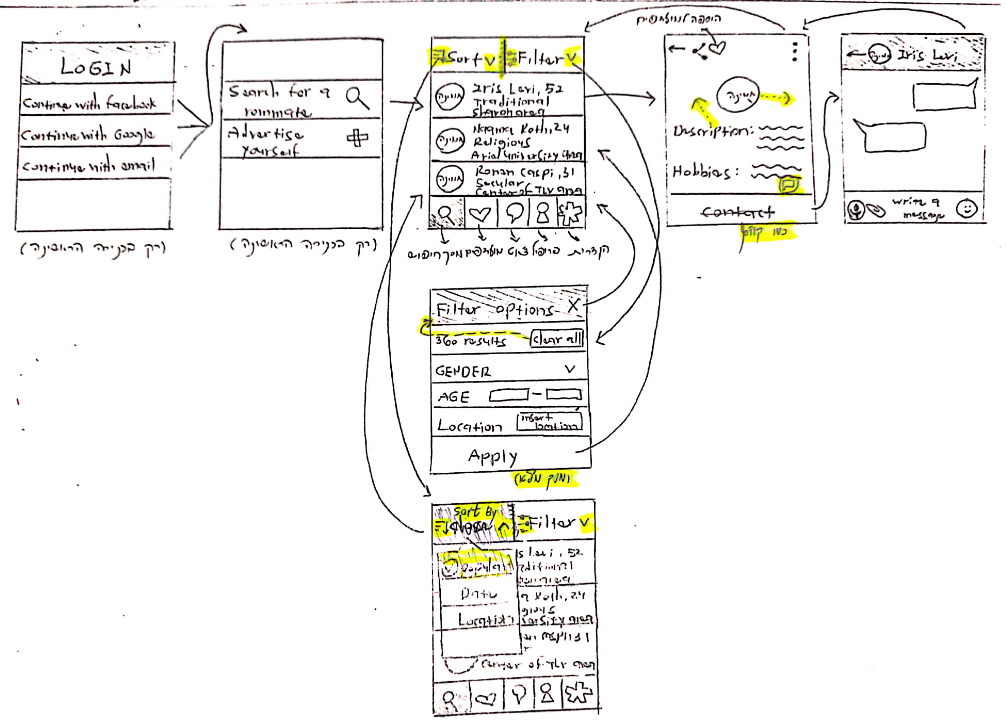 LOGIN
Continue with Facebook
Continue with Google
Continue with email
(רק בכניסה הראשונה)
Search for a
roommate
Advertise
yourself
(רק בכניסה הראשונה)
Sort
Filter
תמונה
Iris Levi, 52
Traditional
Sharon area
תמונה
Naama Roth, 24
Religious
Ariel University area
תמונה
Ronan Caspi, 31
Secular
Center of TLV area
מסך חיפוש
מועדפים
צ'אט
פרופיל
הגדרות
הוספה למועדפים
תמונה
Description:
Hobbies:
Contact
תמונה
Iris Levi
write a
message
Filter options X
360 results
clear all
GENDER
AGE
Location
insert
location
Apply
(מסך מלא)
Sort By
Filter
s Levi, 52
raditional
Date
a Roth, 24
gious
Location
ersity area
an Caspi, 31
Center of TLV area